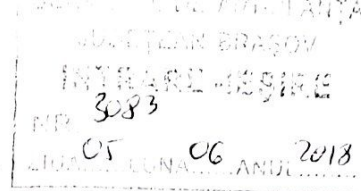 JUDEȚEAN BRAȘOV
INTRARE-IEȘIRE
NR. 3083
ZIUA 05 LUNA 06 ANUL 2018